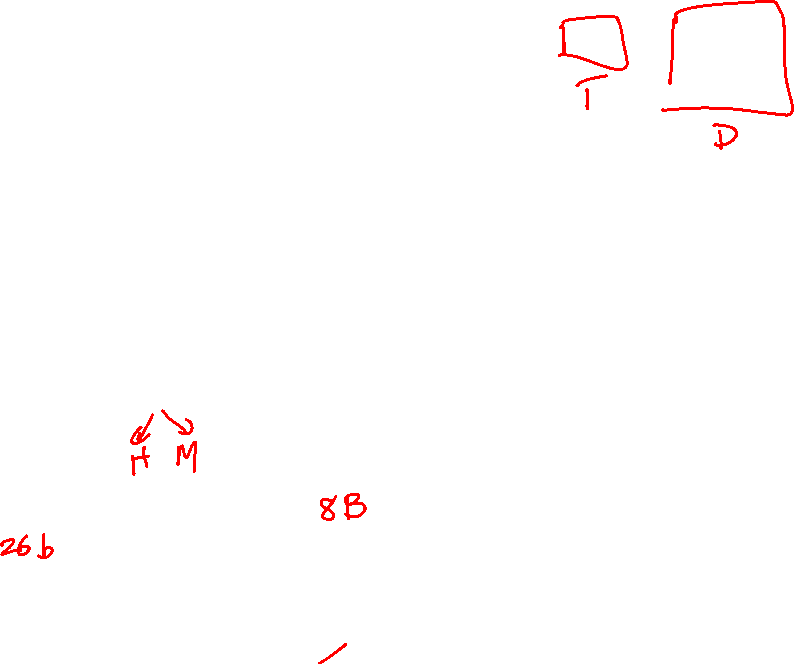 T
D
H M
8B
26b